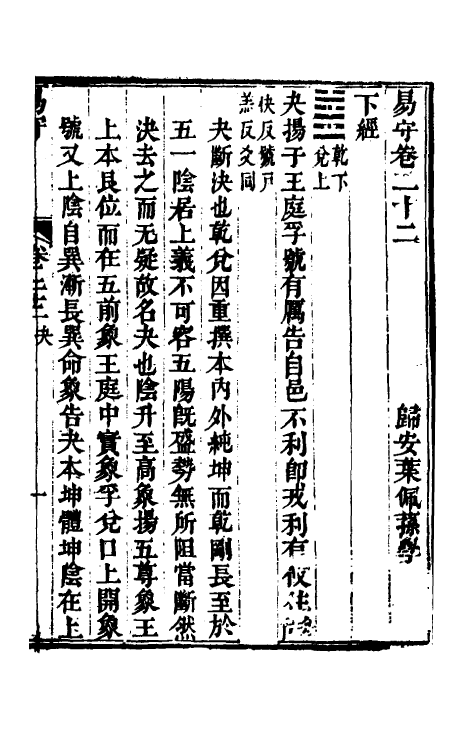 易守卷二十二
歸安葉佩蓀學
下經
乾下
兌上
夬揚于王庭孚號有厲告自邑不利卽戎利有攸往
快反號戸
羔反爻同
夬斷決也乾兌因重撰本內外純坤而乾剛長至於
五一陰居上義不可容五陽旣盛勢無所阻當斷然
決去之而无疑故名夬也陰升至高象揚五尊象王
上本艮位而在五前象王庭中實象孚兌口上開象
號又上陰自巽漸長巽命象告夬本坤體坤陰在上
易守
卷二十二 夬
一